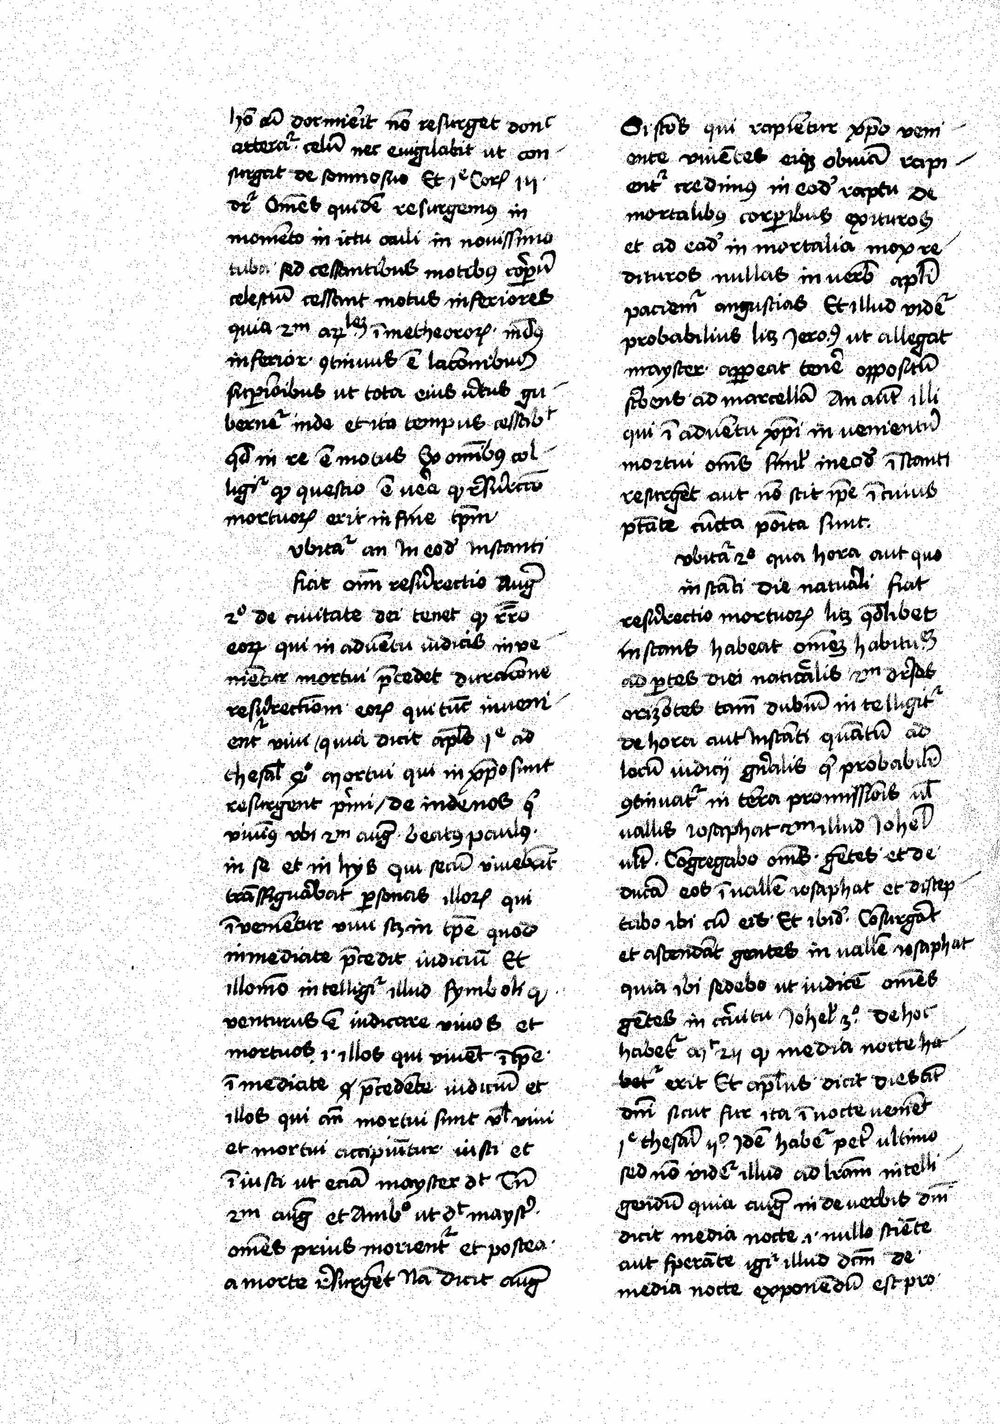 hō cū dormierit nō resurget donᶜ
atteratʳ celū nec euigilabit ut con
surgat de somno suo Et jᵉ Corꝝ iij
drʳ Om̄es quidē resurgemꝯ in
momēto in ictu oculi in nouissimo
tuba sed cessantibus motibꝯ corꝑū
celestiū cessant motus inferiores
quia 2m ī metheororꝝ mūdꝯ
inferior ꝯtinuus ē lacionibus
suꝑioribus ut tota eius uirtus gu
bernetʳ inde et ita tempus cessabᵗ
qd in re ē motus Ex om̄ibꝯ col
ligitʳ ꝙ questio ē uera ꝙ resurrectio
mortuorꝝ erit in fine tꝑm
vbitatʳ an In eod Instanti
fiat om̄ resurrectio Augꝰ
2º de ciuitate dei tenet ꝙ
eorꝝ qui in aduētu iudicis inue
nientur mortui p̄cedet duracione
resurrectionem eorꝝ qui tūc inueni
entʳ viui / quia dicit apl̄s jᵉ ad
thesal 4º mortui qui in xp̄o sunt
resurgent primi / de inde nos qͥ
viuimꝯ vbi 2m augꝰ beatꝯ paulus
in se et in hijs qui secū viuebāt
trāsfigurabat ꝑsonas illorꝝ qui
īuenientur viui scz in tꝑe quod
inmediate p̄cedit iudiciū Et
illo mō intelligitʳ illud symboli ꝙ
venturus ē iudicare viuos et
mortuos .i. illos qui viuent ī tꝑe
īmediate p̄cedente iudiciū et
illos qui an̄ mortui sunt ul viui
et mortui accipiūtur iusti et
īiusti ut eciā mayster dt Tn̄
2m augꝰ et Ambº ut dt maystʳ
omēs prius morientʳ et postea
a morte resurgēt Nā dicit augꝰ
Si scōs qui rapientur xp̄o veni
ente viuētes eiꝯ obuiā rapi
entʳ credimꝯ in eod raptu de
mortalibꝯ corꝑibus exituros
et ad ead in mortalia mox re
dituros nullas in uerb apl̄i
paciemʳ angustias Et illud videtʳ
probabilius lꝫ Jero.9 ut allegat
mayster appeat tenere oppositū
scribens ad marcellā An aut illi
qui ī aduētu xp̄i in uenientur
mortui om̄s simul in eod īstanti
resurgēt aut nō scit ipe ī cuius
ptāte cūcta posita sunt.
vbitatʳ 2º qua hora aut quo
instāti die naturali fiat
resurrectio mortuorꝝ lꝫ qdlibet
instans habeat omēꝫ habitum
ad ꝑtes diei naturalis 2m diūsos
orizōtes tam̄ dubiū intelligitʳ
de hora aut Instāti quātū ad
locū iudicij gn̄alis qͥ probabilitʳ
ꝯtinuatʳ in terra promissiōis ul
uallis iosaphat 2m illud Johel
ult. Cōgregabo om̄s gētes et de
ducā eos ī uallē iosaphat et discep
tabo ibi cū eis Et ibid Cōsurgāt
et ascendāt gentes in uallē iosaphat
quia ibi sedebo ut iudicē om̄es
gētes in circuitu Johel 3º De hoc
habetʳ mᵗ 25 ꝙ media nocte ha
betʳ erit Et apl̄us dicit dies aūt
dn̄i sicut fur ita ī nocte ueniet
jᵉ thesal ijº Idē habetʳ petʳ ultimo
sed nō videtʳ illud ad lram̄ intelli
gēdū quia augꝰ in de uerbis dn̄i
dicit media nocte .i. nullo sciēte
aut sperāte igitʳ illud dcm̄ de
media nocte exponēdū est pro